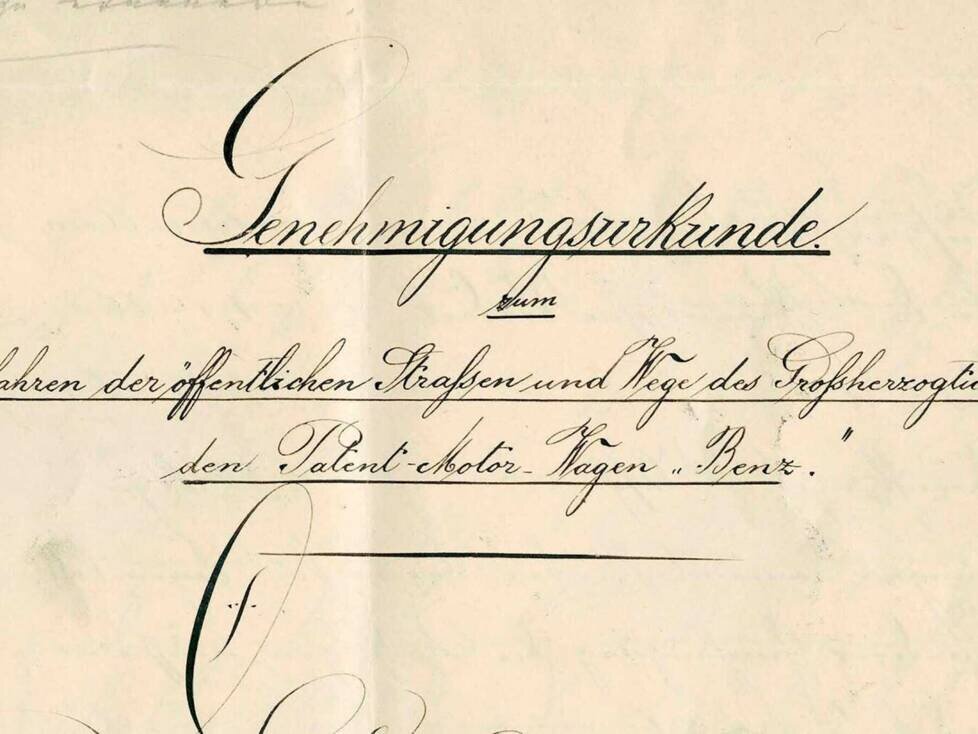 Genehmigungsurkunde.
zum
ahren der öffentlichen Straßen und Wege des Großherzogt
den Patent-Motor-Wagen „Benz."